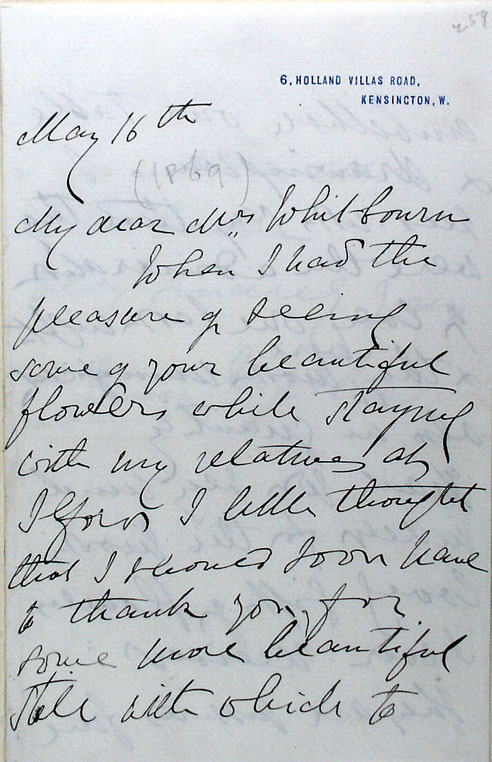 259
6, HOLLAND VILLAS ROAD,
KENSINGTON, W.
May 16th
(1969)
My dear Mrs Whitbourn
When I had the
pleasure of seeing
some of your beautiful
flowers while staying
with my relatives at
Ilford I little thought
that I should soon have
to thank you for
some more beautiful
still with which to